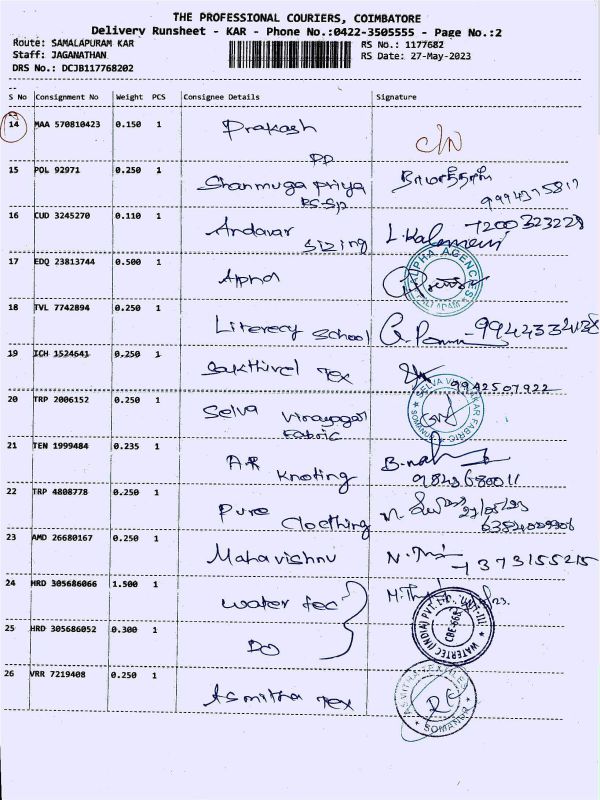 THE PROFESSIONAL COURIERS, COIMBATORE
Delivery Runsheet - KAR - Phone No.:0422-3505555 - Page No.:2
Route: SAMALAPURAM KAR RS No.: 1177682
Staff: JAGANATHAN RS Date: 27-May-2023
DRS No.: DCJB117768202
S No Consignment No Weight PCS Consignee Details Signature
14 MAA 570810423 0.150 1 Prakash C/N
PP
15 POL 92971 0.250 1 Shanmuga priya
16 CUD 3245270 0.110 1 Andavar Sizing 7200323228
17 EDQ 23813744 0.500 1 Alpha ALPHA AGENCIES
18 TVL 7742894 0.250 1 Literecy School
19 ICH 1524641 0.250 1 Sakthivel Tex 9942507922
20 TRP 2006152 0.250 1 Selva Vinayagar
Fabric
21 TEN 1999484 0.235 1 AR Knoting
9843680011
22 TRP 4808778 0.250 1 Pure Clothing
23 AMD 26680167 0.250 1 Mahavishnu 7373155215
24 HRD 305686066 1.500 1 Water Tec
25 HRD 305686052 0.300 1 DO WATERTEC (INDIA) PVT. LTD., UNIT-III
26 VRR 7219408 0.250 1 Asmitha Tex